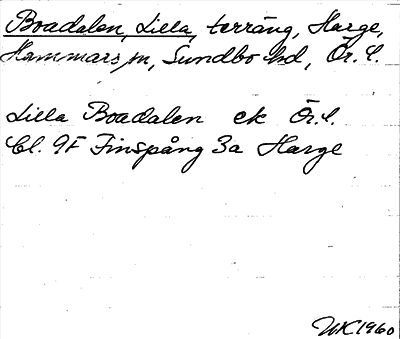 Boadalen, Lilla, terräng, Harge,
Hammars sn, Sundbo hd, Ör. l.
Lilla Boadalen ek Ör. l.
Bl. 9F Finspång 3a Harge
WK 1960